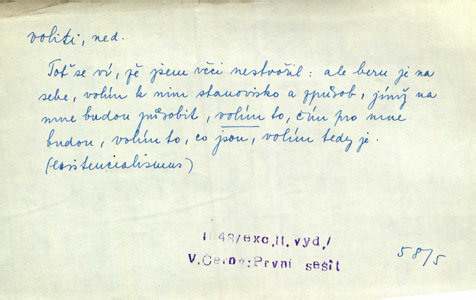 voliti, ned.
Toť se ví, že jsem věci nestvořil: ale beru je na
sebe, volím k nim stanovisko a způsob, jímž na
mne budou působit, volím to, čím pro mne
budou, volím to, co jsou, volím tedy je.
(existencialismus)
1948/exc.II.vyd./
V.Černý:První sešit
58/5